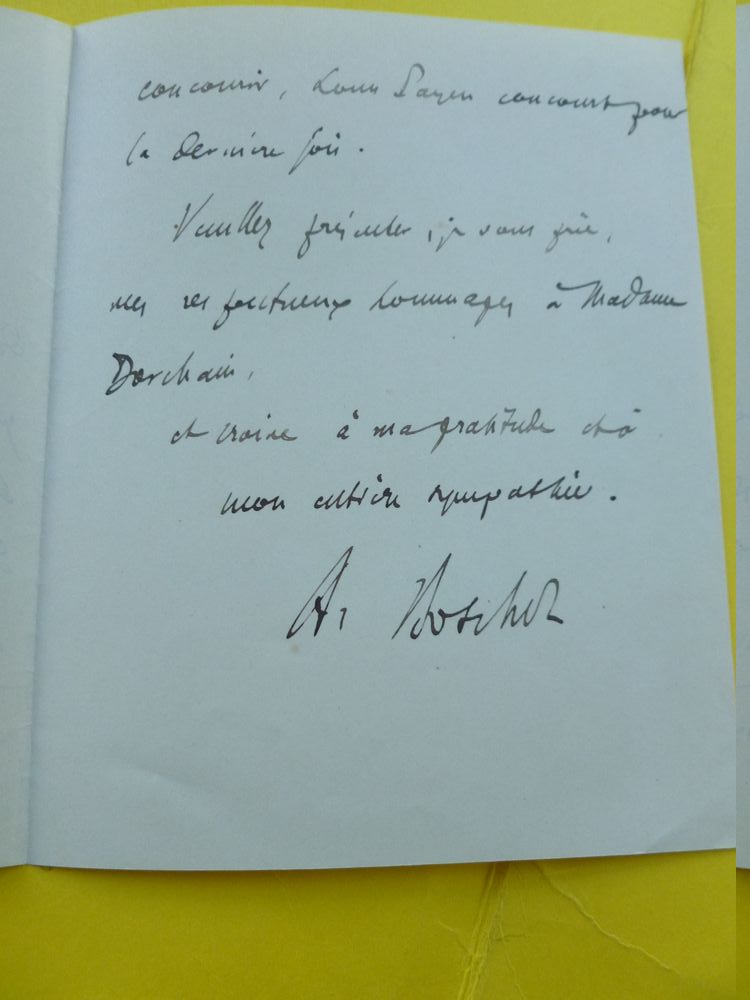 concourir, Louis Payen concourt pour
la dernière fois.
Veuillez présenter, je vous prie,
mes respectueux hommages à Madame
Dorchain,
et croire à ma gratitude et à
mon entière sympathie.
A. Boschot